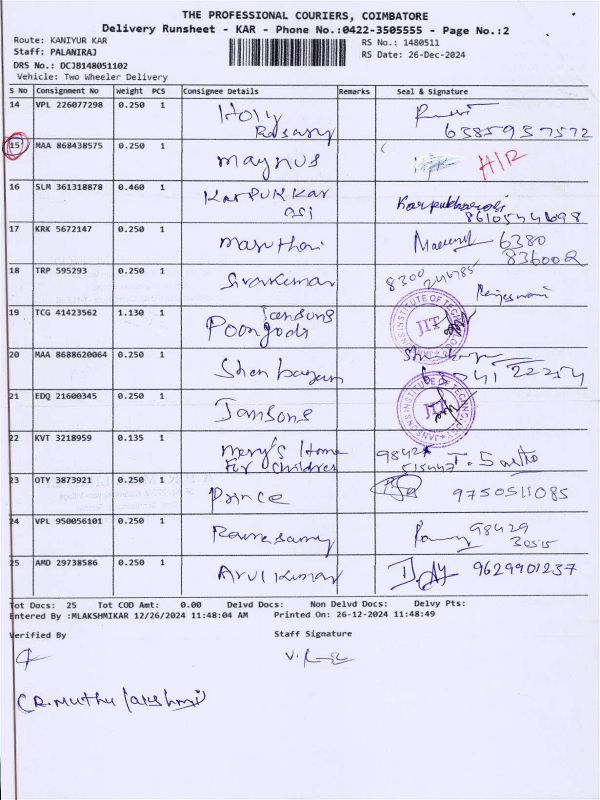 THE PROFESSIONAL COURIERS, COIMBATORE
Delivery Runsheet - KAR - Phone No.:0422-3505555 - Page No.:2
Route: KANIYUR KAR RS No.: 1480511
Staff: PALANIRAJ RS Date: 26-Dec-2024
DRS No.: DCJB148051102
Vehicle: Two Wheeler Delivery
S No Consignment No Weight PCS Consignee Details Remarks Seal & Signature
14 VPL 226077298 0.250 1 Holy
Rosary 6385937572
15 MAA 868438575 0.250 1 Magnus H/R
16 SLM 361318878 0.460 1 Karpukkar
asi Karpukkarasi
8610544698
17 KRK 5672147 0.250 1 Maruthai 6380
836002
18 TRP 595293 0.250 1 Sivakumar 8300 Rajeswari
19 TCG 41423562 1.130 1 Jansons
Poongodi
JANSONS INSTITUTE OF TECHNOLOGY
JIT
20 MAA 8688620064 0.250 1 Shenbagam
21 EDQ 21600345 0.250 1 Jansons
JANSONS INSTITUTE OF TECHNOLOGY
JIT
22 KVT 3218959 0.135 1 Mery's Home
For Children 98424
23 OTY 3873921 0.250 1 Prince 9750511085
24 VPL 950056101 0.250 1 Ramasamy 98429
30515
25 AMD 29738586 0.250 1 Arul Kumar 9629901237
Tot Docs: 25 Tot COD Amt: 0.00 Delvd Docs: Non Delvd Docs: Delvy Pts:
Entered By :MLAKSHMIKAR 12/26/2024 11:48:04 AM Printed On: 26-12-2024 11:48:49
Verified By Staff Signature
(R. Muthu lakshmi)